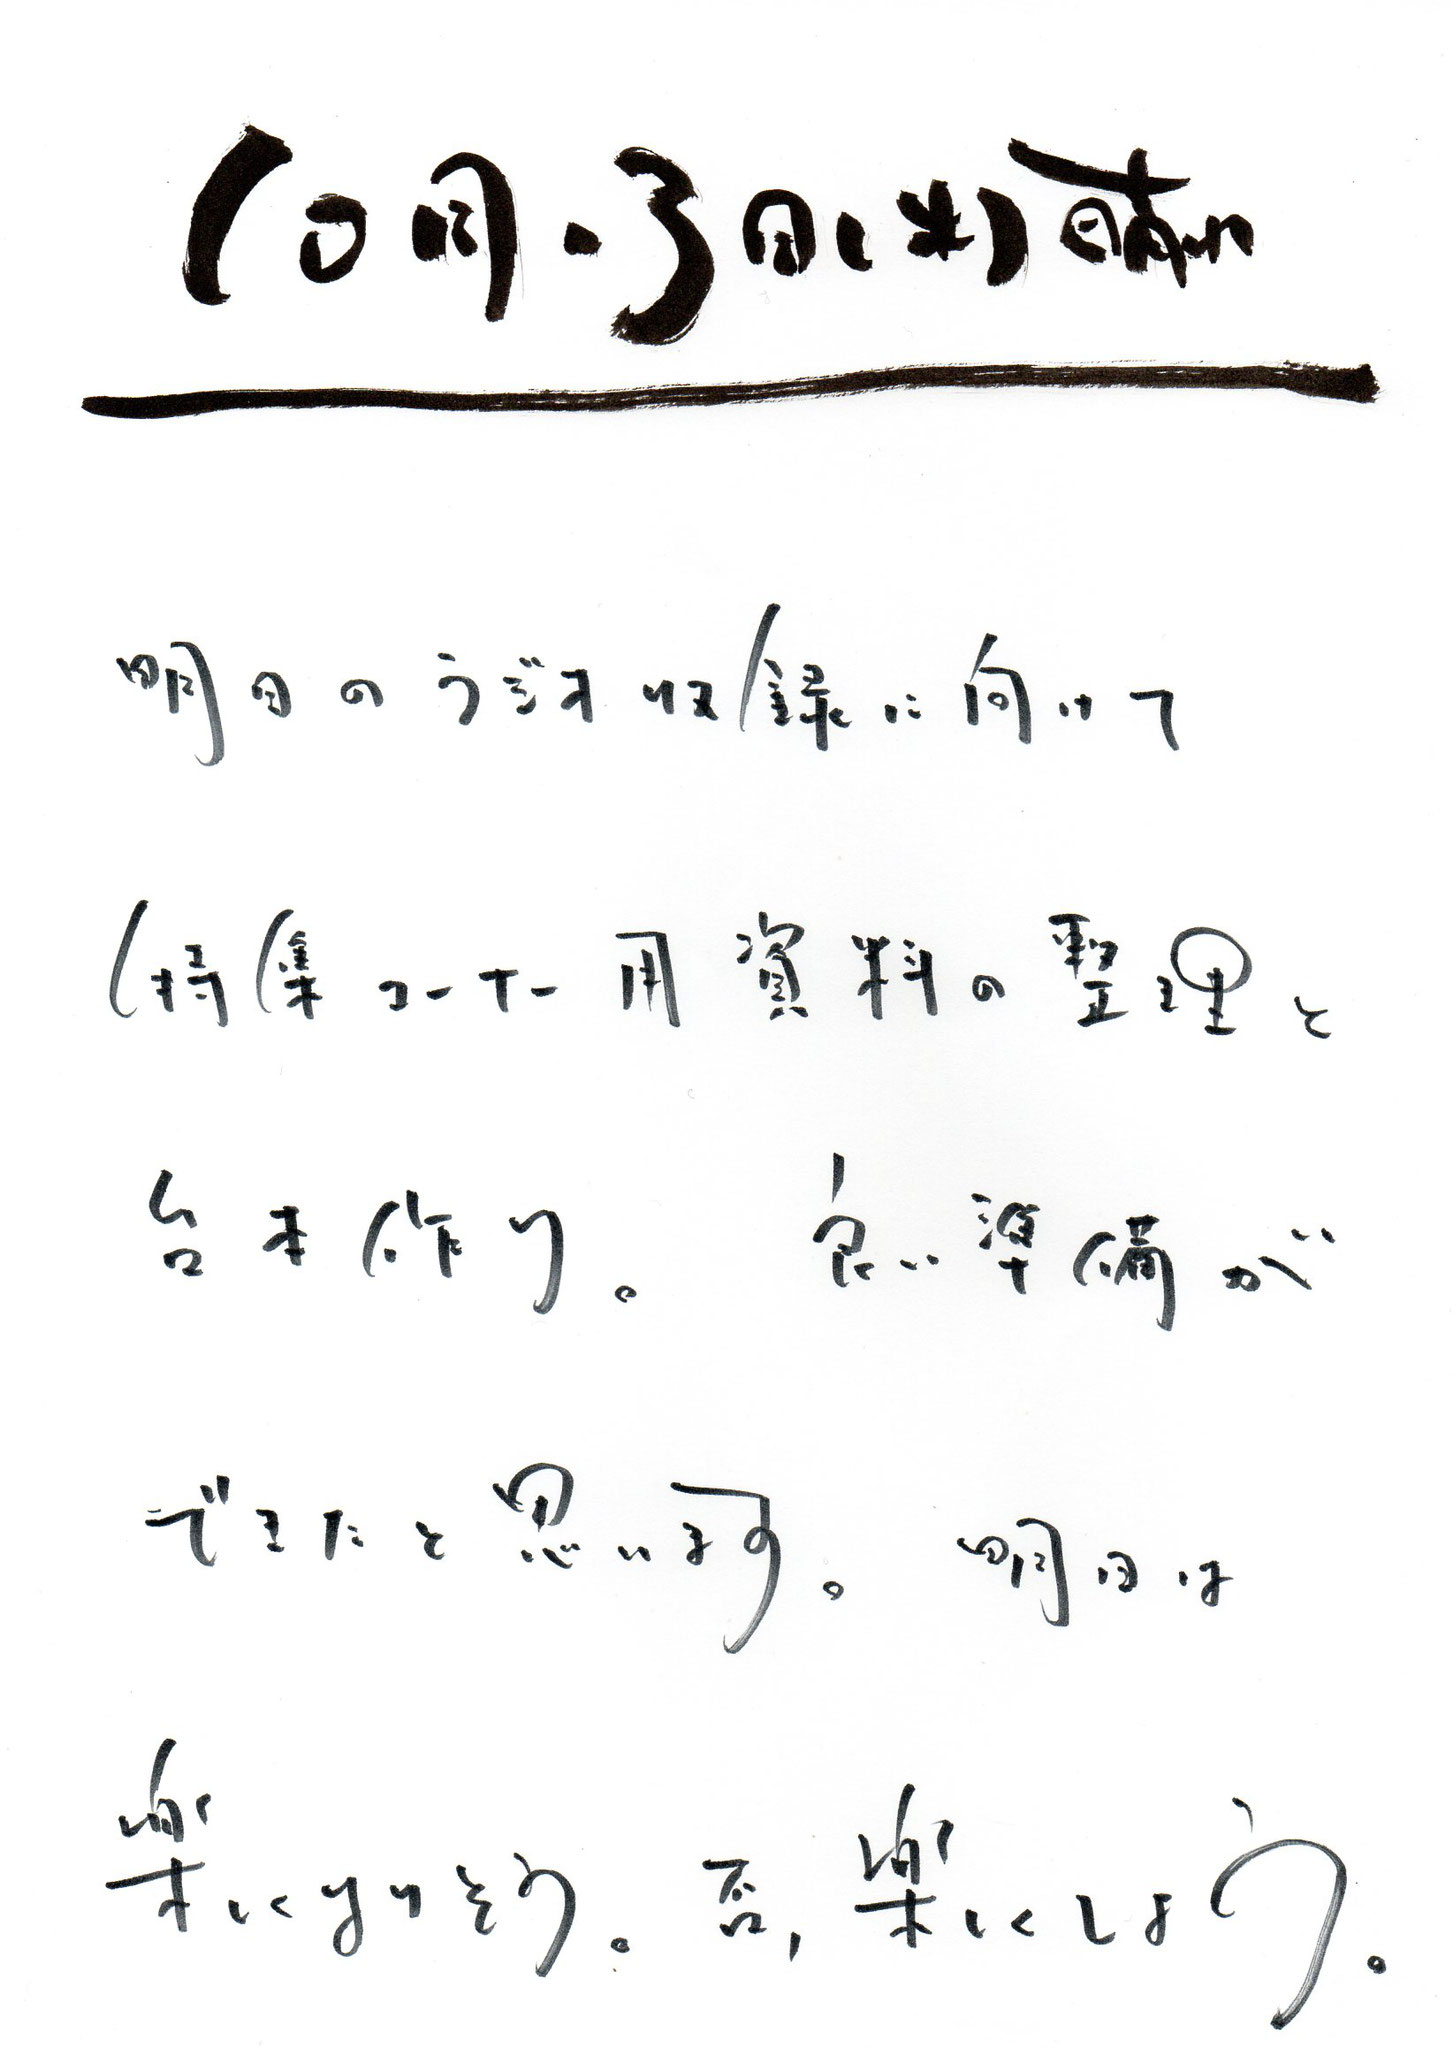 10月・3日(木)晴れ
明日のラジオ収録に向けて
特集コーナー用資料の整理と
台本作り。 良い準備が
できたと思います。 明日は
楽しくなりそう。否,楽しくしよう。